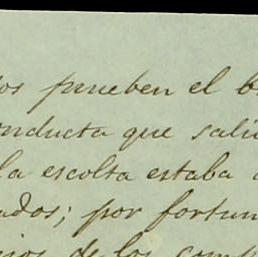 os prueben el b
onducta que salie
la escolta estaba
ados; por fortun
de los comp